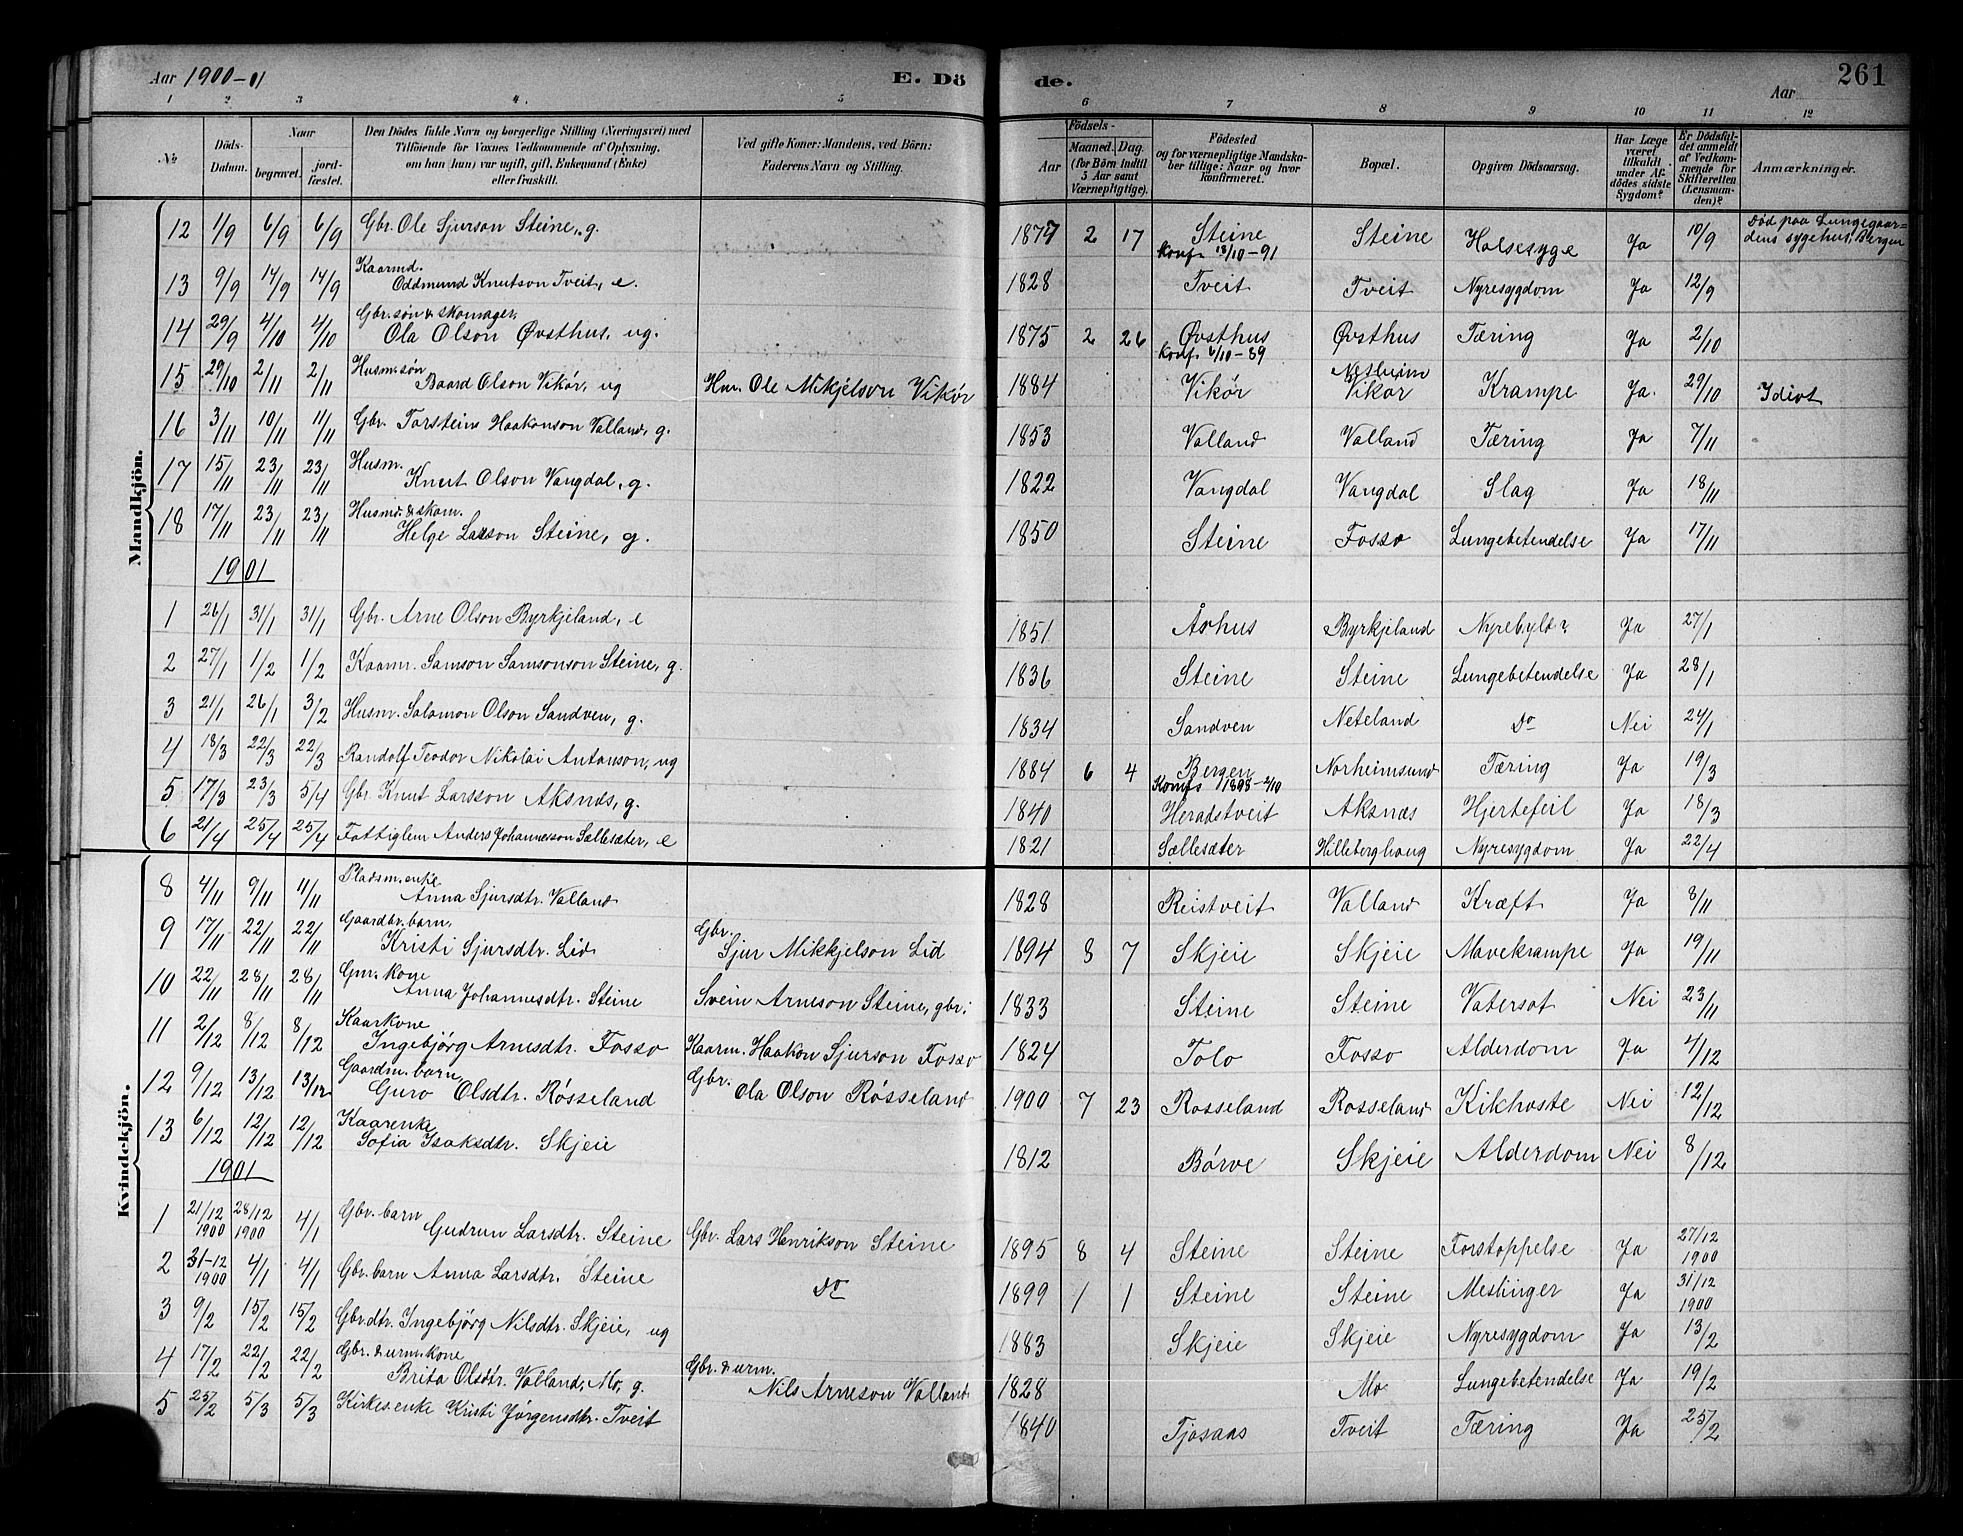 Aar 1900-01 E. Dö de. Aar 261
1 2 3 4. 5 6 7 8 9 10 11 12
No Döds-Datum. Naar begravet. jordfæstet. Den Dödes fulde Navn og borgerlige Stilling (Næringsvei) med Tilföiende for Voxnes Vedkommende af Oplysning, om han (hun) var ugift, gift, Enkemand (Enke) eller fraskilt. Ved gifte Koner: Mandens, ved Börn: Faderens Navn og Stilling. Födsels- Aar Maaned. Dag. (for Börn indtil 5 Aar samt Værnepligtige). Födested og for værnepligtige Mandskaber tillige: Naar og hvor konfirmeret. Bopæl. Opgiven Dödsaarsag. Har Læge været tilkaldt under Afdödes sidste Sygdom? Er Dödsfaldet anmeldt af Vedkommende for Skifteretten (Lensmanden)? Anmærkninger.
Mandkjön.
12 1/9 6/9 6/9 Gbr. Ole Sjurson Steine, g. 1877 2 17 Steine Konf. 18/10-91 Steine Halsesyge Ja 10/9 Død paa Lungegaardens sygehus, Bergen
13 9/9 14/9 14/9 Kaarmd. Oddmund Knutson Tveit, e. 1828 Tveit Tveit Nyresygdom Ja 12/9
14 29/9 4/10 4/10 Gbr. søn & skomager, Ola Olson Øvsthus, ug. 1875 2 26 Øvsthus Konf. 6/10-89 Øvsthus Tæring Ja 2/10
15 29/10 2/11 2/11 Husm. søn Baard Olson Vikør, ug Hm. Ole Mikjelson Vikør 1884 Vikør Netheim Vikør Krampe Ja. 29/10 Idiot
16 3/11 10/11 11/11 Gbr. Torstein Haakonson Valland, g. 1853 Valland Valland Tæring Ja 7/11
17 15/11 23/11 23/11 Husm. Knut Olson Vangdal, g. 1822 Vangdal Vangdal Slag Ja 18/11
18 17/11 23/11 23/11 Husmd. & skom. Helge Larson Steine, g. 1850 Steine Fosso Lungebetendelse Ja 17/11
1901
1 26/1 31/1 31/1 Gbr. Arne Olson Byrkjeland, e 1851 Århus Byrkjeland Nyrebyld? Ja 27/1
2 27/1 1/2 1/2 Kaarm. Samson Samsonson Steine, g. 1836 Steine Steine Lungebetendelse Ja 28/1
3 21/1 26/1 3/2 Husm. Salamon Olson Sandven, g. 1834 Sandven Neteland Do Nei 24/1
4 18/3 22/3 22/3 Randolf Teodor Nikolai Antonson, ug 1884 6 4 Bergen Konf. 1898-2/10 Norheimsund Tæring Ja 19/3
5 17/3 23/3 5/4 Gbr. Knut Larsson Aksnes, g. 1840 Heradstveit Aksnæs Hjertefeil Ja 18/3
6 21/4 25/4 25/4 Fattiglem Anders Johannesson Sællesæter, e 1821 Sællesæter Hilleberghaug Nyresygdom Ja 22/4
Kvindekjön.
8 4/11 9/11 11/11 Pladsm. enke Anna Sjursdtr. Valland 1828 Reistveit Valland Kræft Ja 8/11
9 17/11 22/11 22/11 Gaardbr. barn, Kristi Sjursdtr. Lid Gbr. Sjur Mikkjelson Lid 1894 8 7 Skjeie Skjeie Mavekrampe Ja 19/11
10 22/11 28/11 28/11 Gm. kone Anna Johannesdtr. Steine Svein Arneson Steine, gbr. 1833 Steine Steine Vatersot Nei 23/11
11 2/12 8/12 8/12 Kaarkone Ingebjørg Arnesdtr. Fosso Kaarm. Haakon Sjurson Fosso 1824 Tolo Fosso Alderdom Ja 4/12
12 9/12 13/12 13/12 Gaardm. barn, Guro Olsdtr. Røsseland Gbr. Ola Olson Røsseland 1900 7 23 Rosseland Rosseland Kikhoste Nei 12/12
13 6/12 12/12 12/12 Kaarenke Sofia Isaksdtr. Skjeie 1812 Børve Skjeie Alderdom Nei 8/12
1901
1 21/12 1900 28/12 1900 4/1 Gbr. barn Gudrun Larsdtr. Steine Gbr. Lars Henrikson Steine 1895 8 4 Steine Steine Forstoppelse Ja 27/12 1900
2 31-12 1900 4/1 4/1 Gbr. barn Anna Larsdtr. Steine Do 1899 1 1 Steine Steine Meslinger Ja 31/12 1900
3 9/2 15/2 15/2 Gbr. dtr. Ingebjørg Nilsdtr. Skjeie, ug 1883 Skjeie Skjeie Nyresygdom Ja 13/2
4 17/2 22/2 22/2 Gbr. & urm. kone Brita Olsdtr. Valland, Mo, g. Gbr. & urm. Nils Arneson Valland 1828 Mo Lungebetendelse Ja 19/2
5 25/2 5/3 5/3 Kirkes. enke Kristi Jørgensdtr. Tveit 1840 Tjosaas Tveit Tæring Ja 25/2